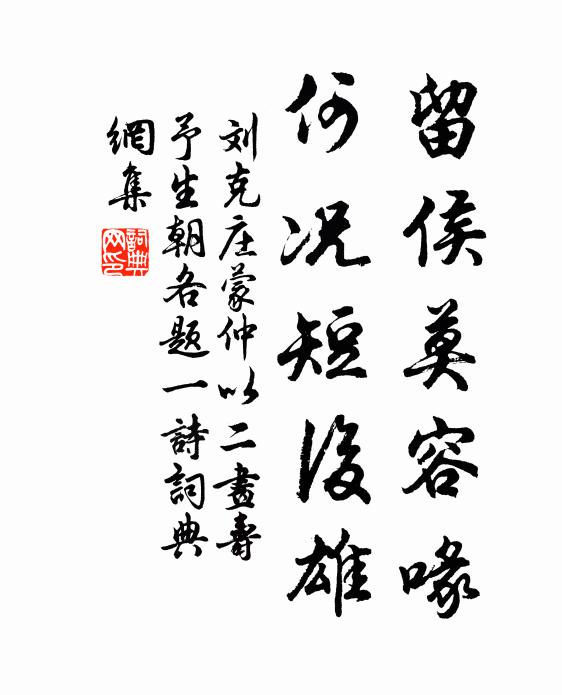 留侯莫容喙
何况短後雄
刘克庄蒙仲以二畫壽
予生朝各题一詩詞典
網集
詞典網印